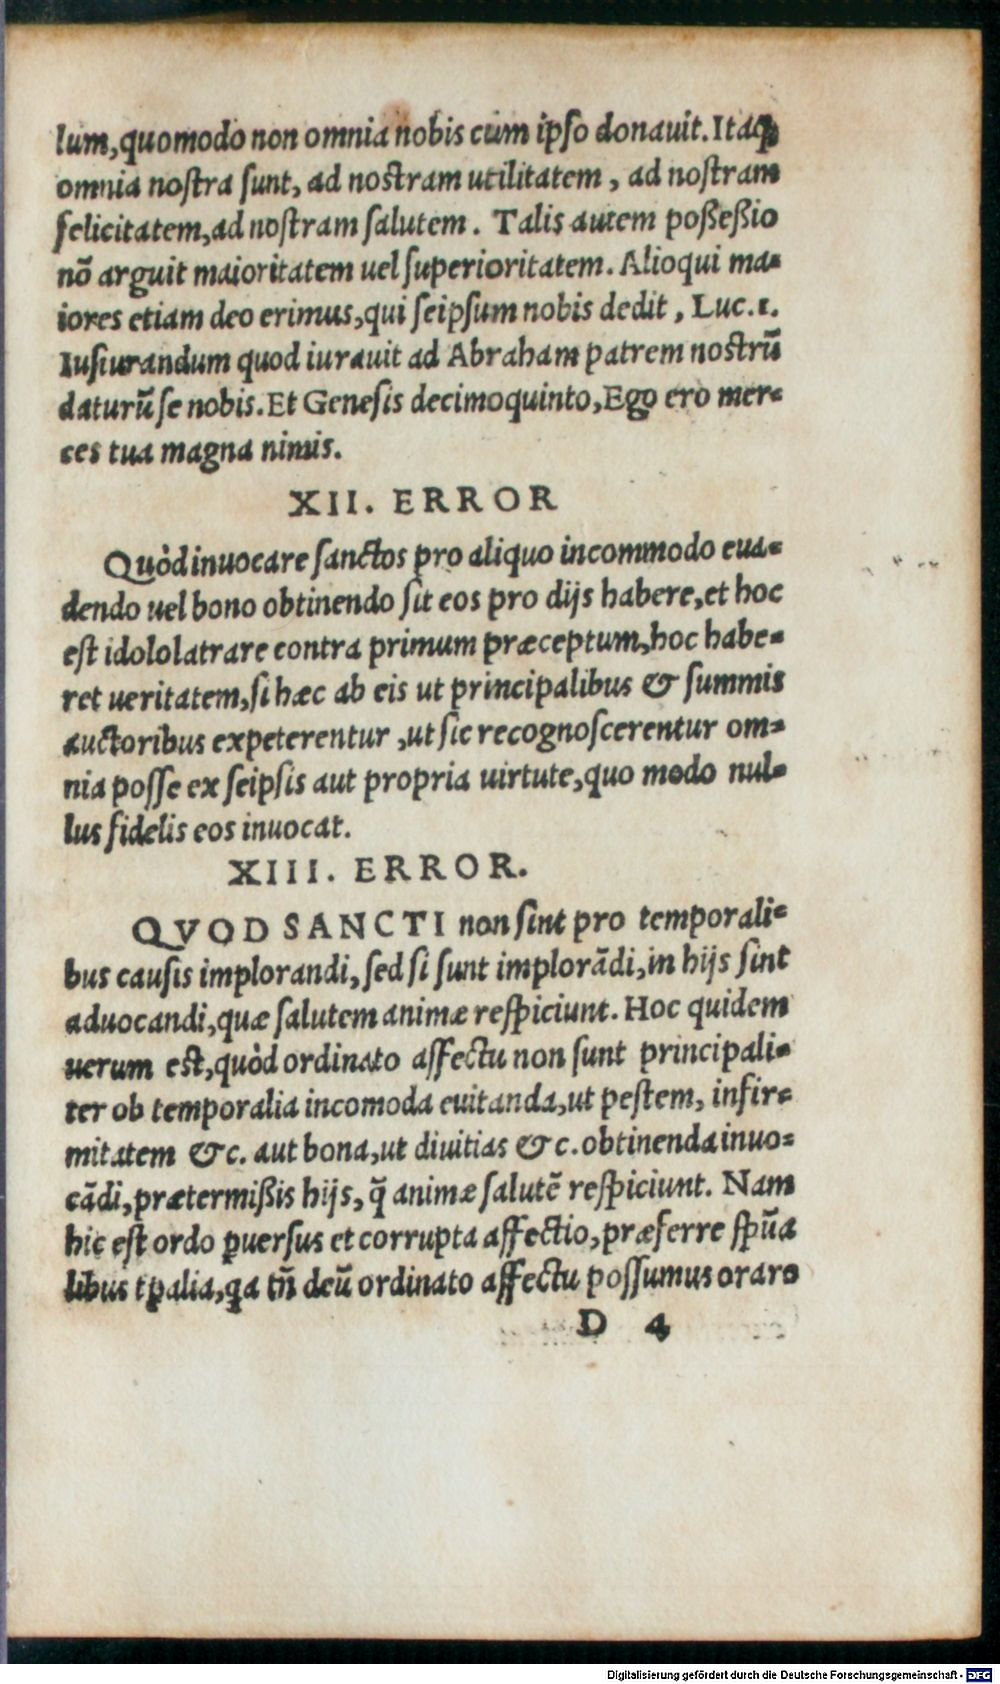 lum,quomodo non omnia nobis cum ipso donauit.Itaqꝫ
omnia nostra sunt, ad nostram utilitatem, ad nostram
felicitatem,ad nostram salutem. Talis autem poßeßio
nõ arguit maioritatem uel superioritatem. Alioqui ma-
iores etiam deo erimus,qui seipsum nobis dedit, Luc.1.
Iusiurandum quod iurauit ad Abraham patrem nostrũ
daturũ se nobis. Et Genesis decimoquinto, Ego ero mer-
ces tua magna nimis.
XII. ERROR
Quòd inuocare sanctos pro aliquo incommodo eua-
dendo uel bono obtinendo sit eos pro dijs habere,et hoc
est idololatrare contra primum præceptum,hoc habe-
ret ueritatem,si hæc ab eis ut principalibus & summis
auctoribus expeterentur ,ut sic recognoscerentur om-
nia posse ex seipsis aut propria uirtute,quo modo nul-
lus fidelis eos inuocat.
XIII. ERROR.
QVOD SANCTI non sint pro temporali-
bus causis implorandi, sed si sunt implorãdi,in hijs sint
aduocandi,quæ salutem animæ respiciunt. Hoc quidem
uerum est,quòd ordinato affectu non sunt principali-
ter ob temporalia incomoda euitanda,ut pestem, infir-
mitatem &c. aut bona,ut diuitias &c.obtinenda inuo-
cãdi,prætermißis hijs,q̃ animæ salutẽ respiciunt. Nam
hic est ordo ꝑuersus et corrupta affectio,præferre spũa
libus tꝑalia,qa tñ deũ ordinato affectu possumus orare
D 4
Digitalisierung gefördert durch die Deutsche Forschungsgemeinschaft - DFG